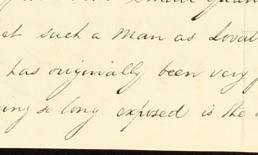 such a Man as Lovat
has originally been very
so long exposed is the